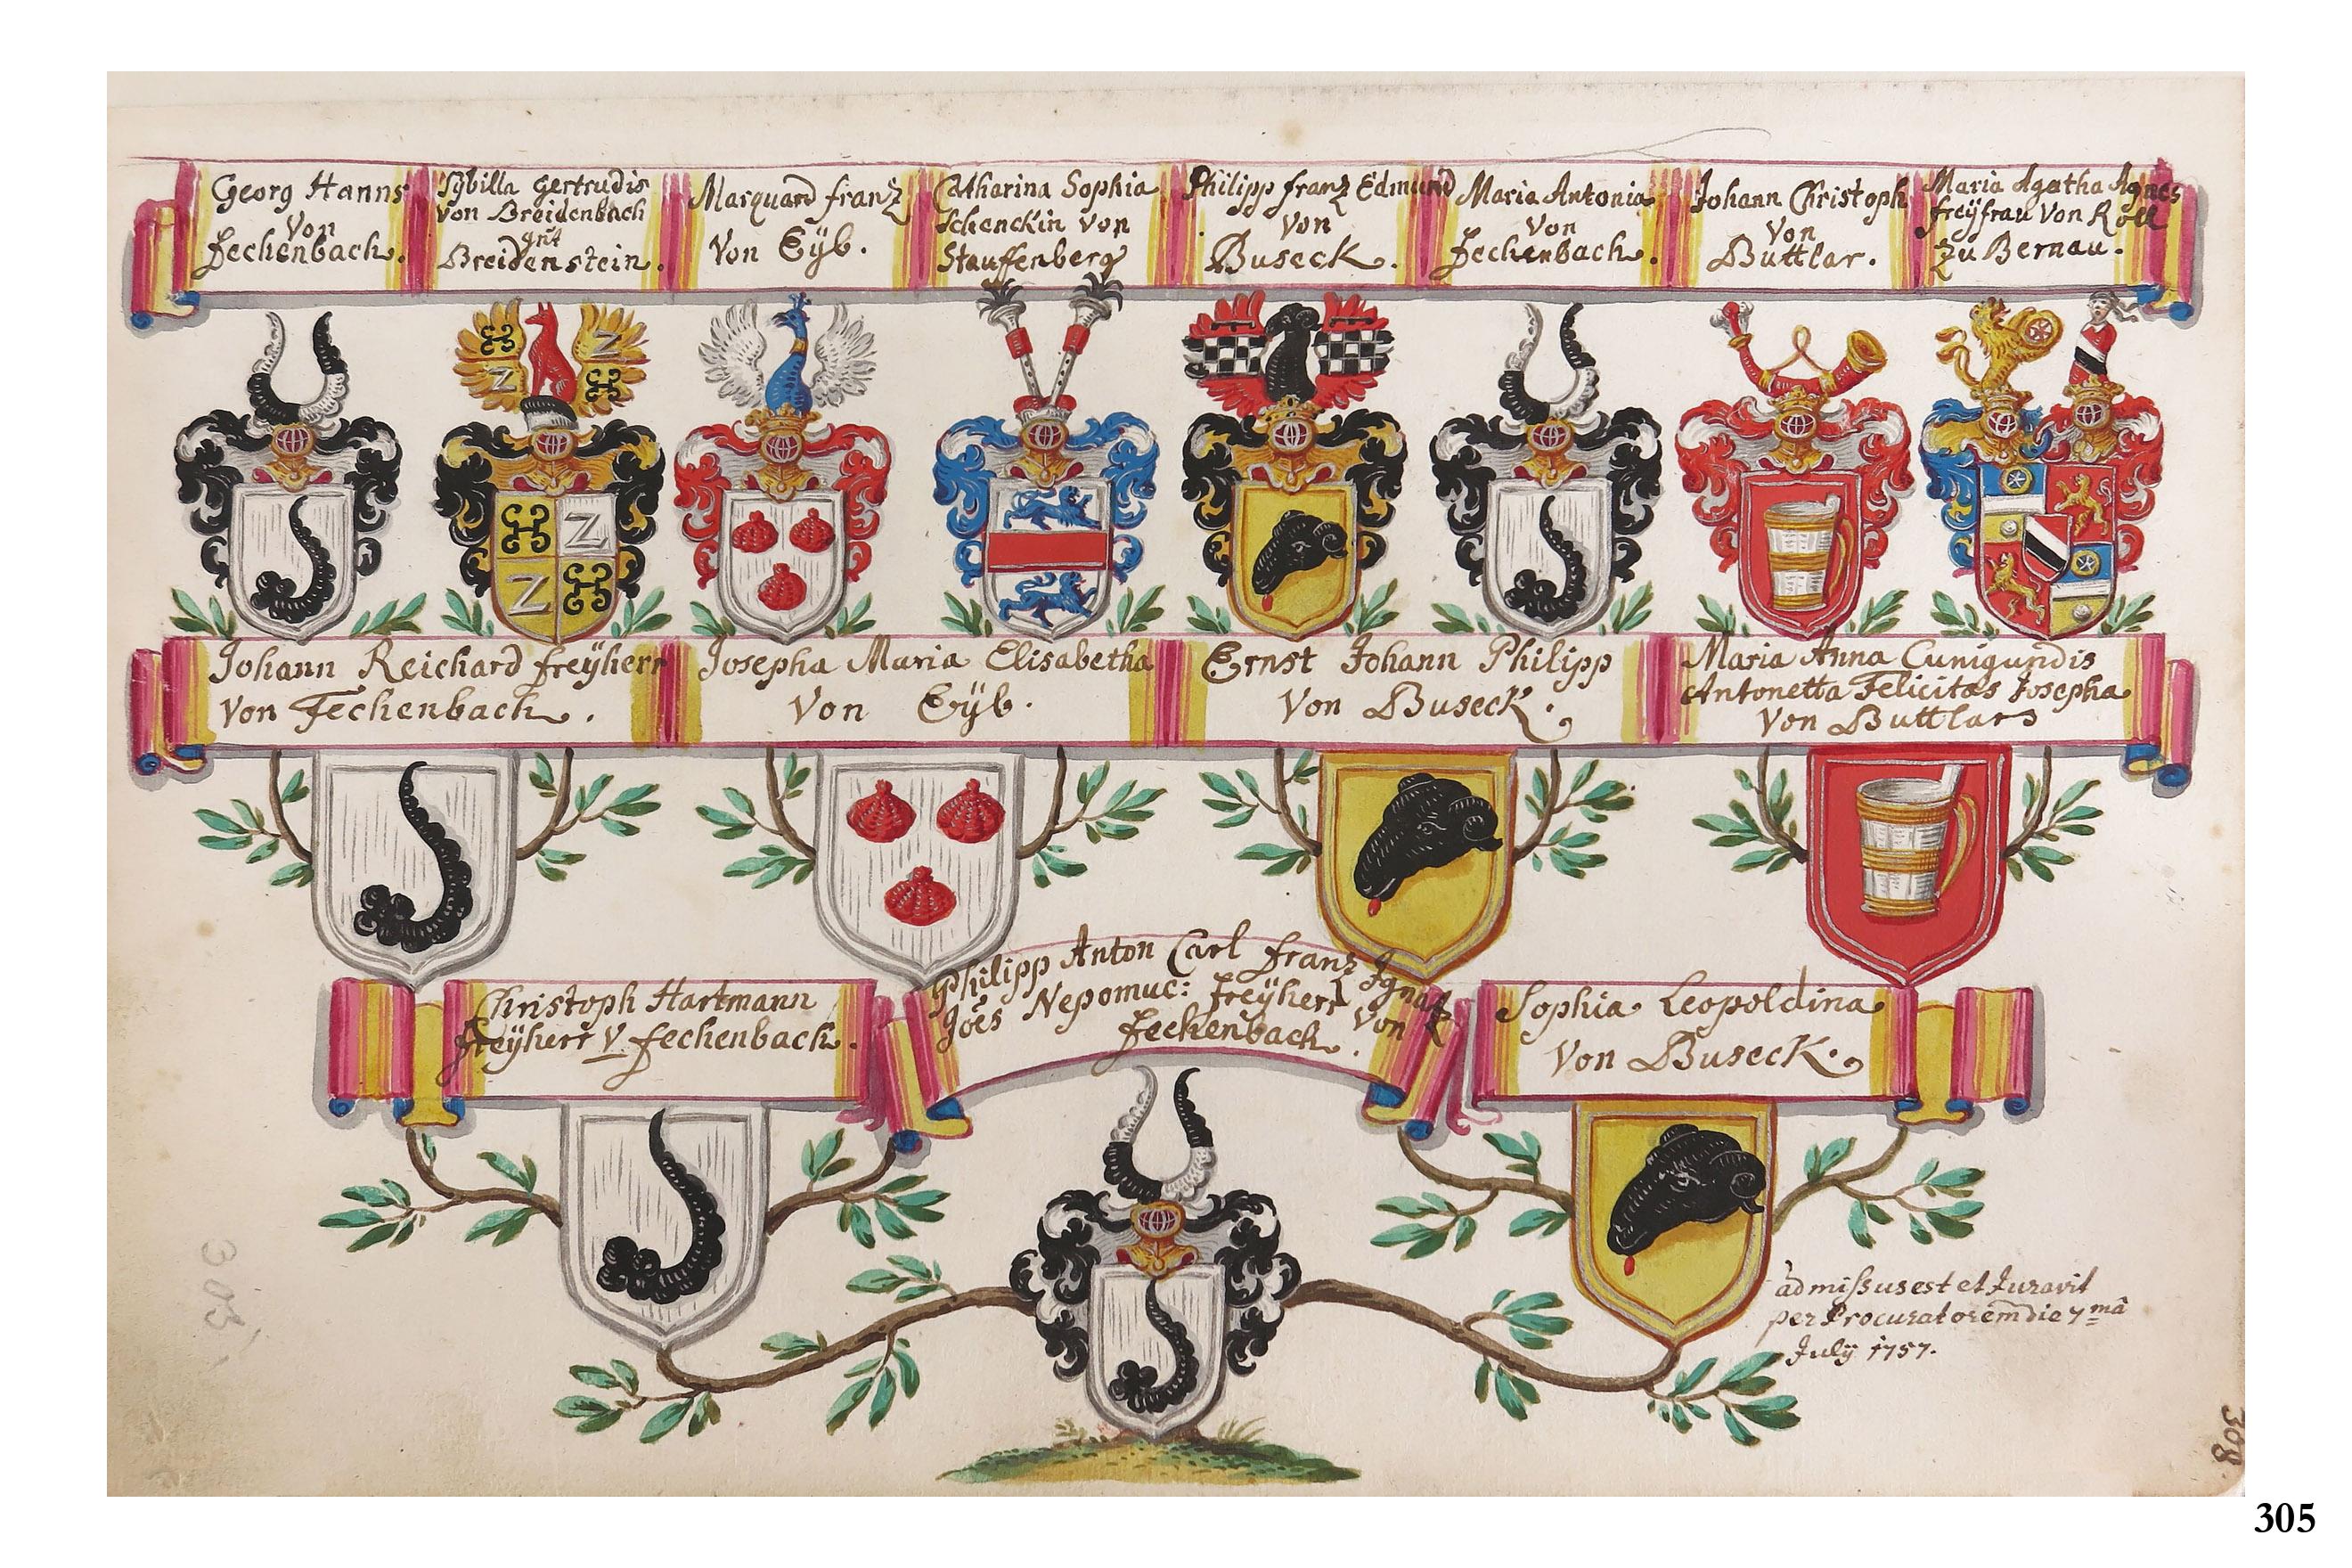 Georg Hanns
Von
Fechenbach.
Sybilla Gertrudis
von Breidenbach
gnt
Breidenstein.
Marquard frantz
Von Eÿb.
Catharina Sophia
Schenckin von
Stauffenberg
Philipp frantz Edmund
Von
Buseck.
Maria Antonia
Von
Fechenbach.
Johann Christoph
Von
Buttlar.
Maria Agatha Agnes
freÿfrau Von Roll
Zu Bernau.
Johann Reichard freÿherr
Von Fechenbach.
Josepha Maria Elisabetha
Von Eÿb.
Ernst Johann Philipp
Von Buseck.
Maria Anna Cunigundis
Antonetta Felicitas Josepha
Von Buttlars
Christoph Hartmann
freÿherr V. fechenbach.
Philipp Anton Carl frantz Ignatz
Joes Nepomuc: freÿherr Von
Fechenbach.
Sophia Leopoldina
Von Buseck.
admissus est et Juravit
per Procuratorem die 7mâ
Julÿ 1757.
303
308.
305